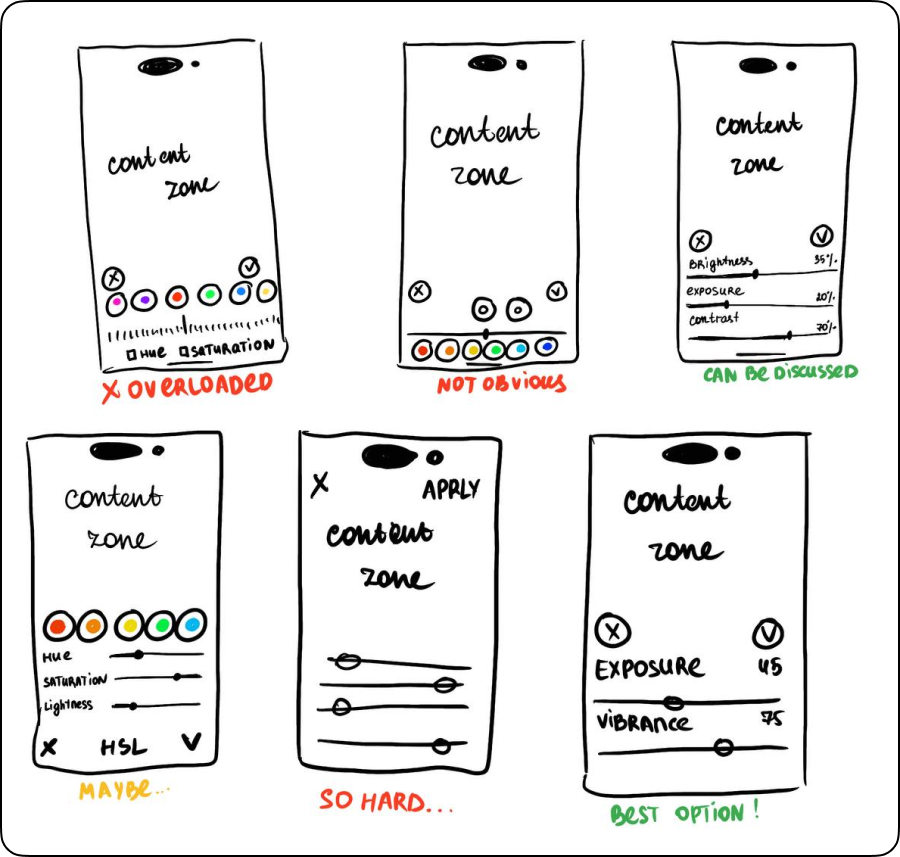 content
zone
X
V
HUE SATURATION
X OVERLOADED
content
zone
X
V
NOT OBVIOUS
content
zone
X
V
BRightness 35%
exposure 20%
contrast 70%
CAN BE DISCUSSED
content
zone
HUE
SATURATION
Lightness
X HSL V
MAYBE...
X APPLY
content
zone
SO HARD...
content
zone
X
V
EXPOSURE 45
VIBRANCE 75
BEST OPTION!